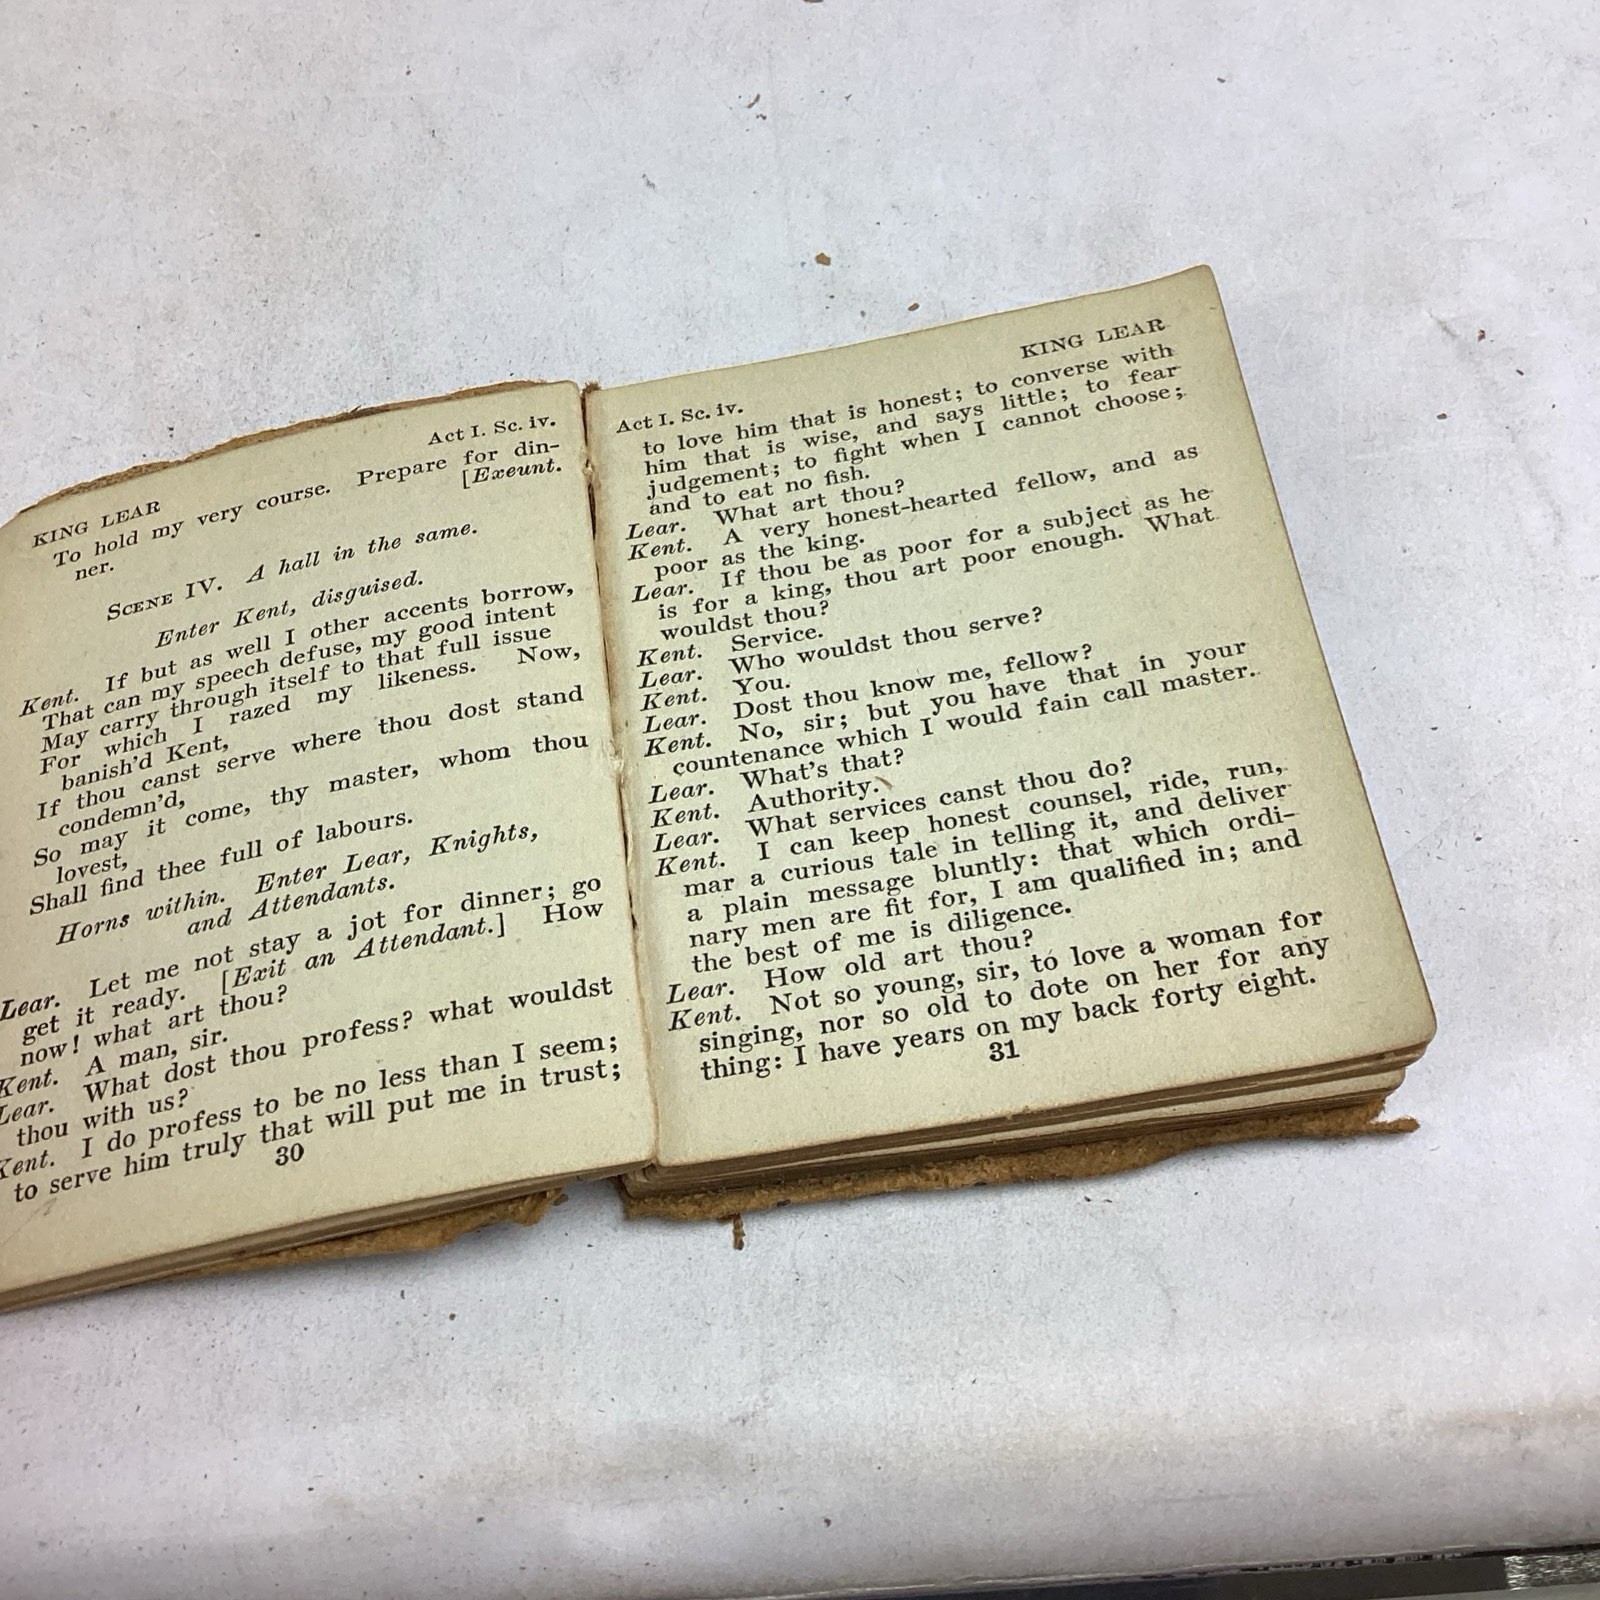 KING LEAR Act I. Sc. iv.
To hold my very course. Prepare for din-
ner. [Exeunt.
SCENE IV. A hall in the same.
Enter Kent, disguised.
Kent. If but as well I other accents borrow,
That can my speech defuse, my good intent
May carry through itself to that full issue
For which I razed my likeness. Now,
banish'd Kent,
If thou canst serve where thou dost stand
condemn'd,
So may it come, thy master, whom thou
lovest,
Shall find thee full of labours.
Horns within. Enter Lear, Knights,
and Attendants.
Lear. Let me not stay a jot for dinner; go
get it ready. [Exit an Attendant.] How
now! what art thou?
Kent. A man, sir.
Lear. What dost thou profess? what wouldst
thou with us?
Kent. I do profess to be no less than I seem;
to serve him truly that will put me in trust;
30
Act I. Sc. iv. KING LEAR
to love him that is honest; to converse with
him that is wise, and says little; to fear
judgement; to fight when I cannot choose;
and to eat no fish.
Lear. What art thou?
Kent. A very honest-hearted fellow, and as
poor as the king.
Lear. If thou be as poor for a subject as he
is for a king, thou art poor enough. What
wouldst thou?
Kent. Service.
Lear. Who wouldst thou serve?
Kent. You.
Lear. Dost thou know me, fellow?
Kent. No, sir; but you have that in your
countenance which I would fain call master.
Lear. What's that?
Kent. Authority.
Lear. What services canst thou do?
Kent. I can keep honest counsel, ride, run,
mar a curious tale in telling it, and deliver
a plain message bluntly: that which ordi-
nary men are fit for, I am qualified in; and
the best of me is diligence.
Lear. How old art thou?
Kent. Not so young, sir, to love a woman for
singing, nor so old to dote on her for any
thing: I have years on my back forty eight.
31